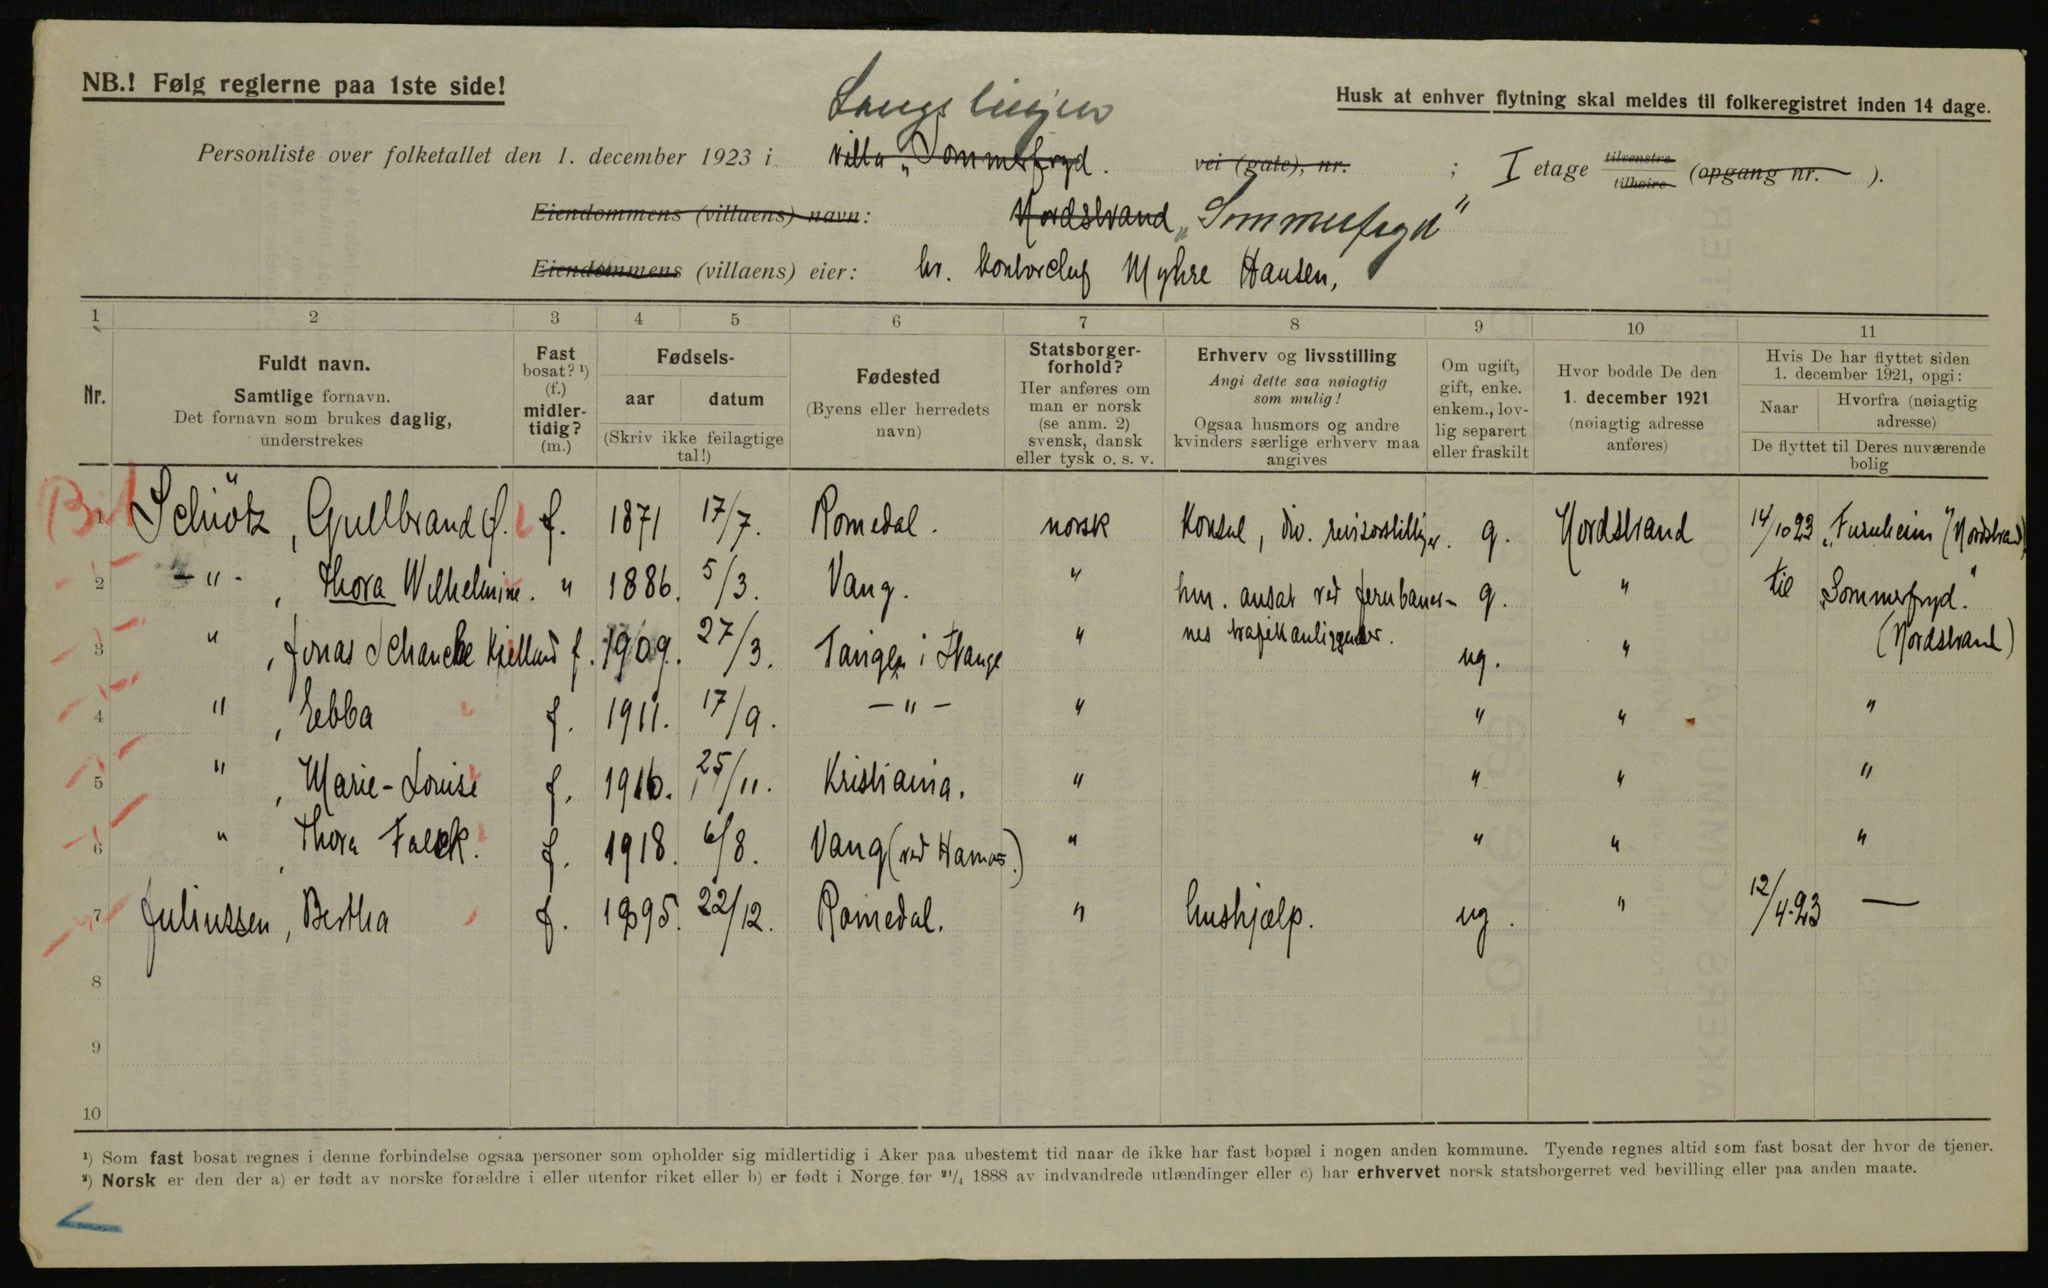 NB.! Følg reglerne paa 1ste side!
Husk at enhver flytning skal meldes til folkeregistret inden 14 dage.
Personliste over folketallet den 1. december 1923 i villa „Sommerfryd. vei (gate), nr. ; I etage tilvenstre tilhøire (opgang nr. ).
Eiendommens (villaens) navn: Nordstrand „Sommerfryd"
Eiendommens (villaens) eier: hr. kontorchef Myhre Hansen,
1 2 3 4 5 6 7 8 9 10 11
Nr.
Fuldt navn.
Samtlige fornavn.
Det fornavn som brukes daglig, understrekes
Fast bosat? ¹) (f.) midler-tidig? (m.)
Fødsels-
aar datum
(Skriv ikke feilagtige tal!)
Fødested
(Byens eller herredets navn)
Statsborger-forhold?
Her anføres om man er norsk (se anm. 2) svensk, dansk eller tysk o. s. v.
Erhverv og livsstilling
Angi dette saa nøiagtig som mulig!
Ogsaa husmors og andre kvinders særlige erhverv maa angives
Om ugift, gift, enke. enkem., lov-lig separert eller fraskilt
Hvor bodde De den 1. december 1921 (nøiagtig adresse anføres)
Hvis De har flyttet siden 1. december 1921, opgi:
Naar Hvorfra (nøiagtig adresse)
De flyttet til Deres nuværende bolig
1 Schiötz, Gullbrand Ø. f. 1871 17/7. Romedal. norsk Konsul, div. revisorstillinger. g. Nordstrand 14/10 23 „Furuheim" (Nordstrand)
2 -"- , Thora Wilhelmine. " 1886. 5/3. Vang. " hm. ansat ved jernbaner- g. " til „Sommerfryd."
3 " , Jonas Schancke Kielland f. 1909. 27/3. Tangen i Stange " nes trafikanliggender. ug. " (Nordstrand)
4 " , Ebba f. 1911. 17/9. -"- " " " "
5 " , Marie-Louise f. 1916. 25/11. Kristiania. " " " "
6 " , Thora Falck. f. 1918. 6/8. Vang (ved Hamar.) " " " "
7 Juliussen, Bertha f. 1895. 22/12. Romedal. " hushjælp. ug. " 12/4.23 —
8
9
10
¹) Som fast bosat regnes i denne forbindelse ogsaa personer som opholder sig midlertidig i Aker paa ubestemt tid naar de ikke har fast bopæl i nogen anden kommune. Tyende regnes altid som fast bosat der hvor de tjener.
²) Norsk er den der a) er født av norske forældre i eller utenfor riket eller b) er født i Norge før 21/4 1888 av indvandrede utlændinger eller c) har erhvervet norsk statsborgerret ved bevilling eller paa anden maate.